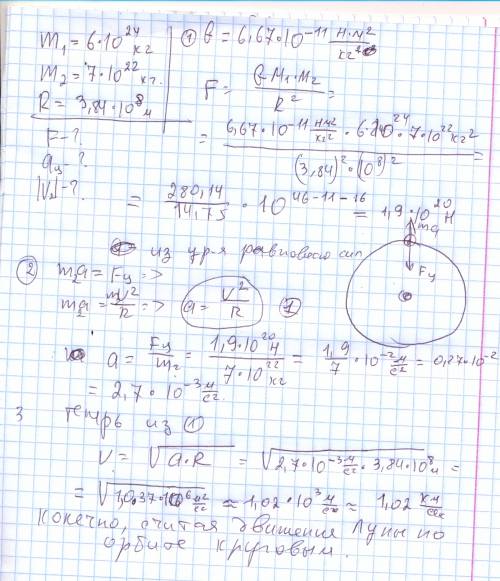 m₁ = 6·10²⁴ кг
① G = 6,67·10⁻¹¹ Н·м²/кг²
m₂ = 7·10²² кг.
R = 3,84·10⁸ м
F = G·M₁·M₂/R² =
F - ?
aц - ?
|Vл| - ?
= 6,67·10⁻¹¹ Нм²/кг² · 6·10²⁴·7·10²² кг² / (3,84)²·(10⁸)² =
= 280,14/14,75 · 10⁴⁶⁻¹¹⁻¹⁶ = 1,9·10²⁰ Н
ma
из ур-я равновесия сил
Fц
② m₂a = Fц =>
m₂a = mV²/R => a = V²/R ①
a = Fц/m₂ = 1,9·10²⁰Н/7·10²² кг = 1,9/7 · 10⁻² м/с² = 0,27·10⁻²
= 2,7·10⁻³ м/с².
3 теперь из ①
V = √a·R = √2,7·10⁻³ м/с² · 3,84·10⁸ м =
= √10,37·10⁶ м²/с² ≈ 1,02·10³ м/сек ≈ 1,02 км/сек
конечно, считая движения Луны по
орбите круговым.